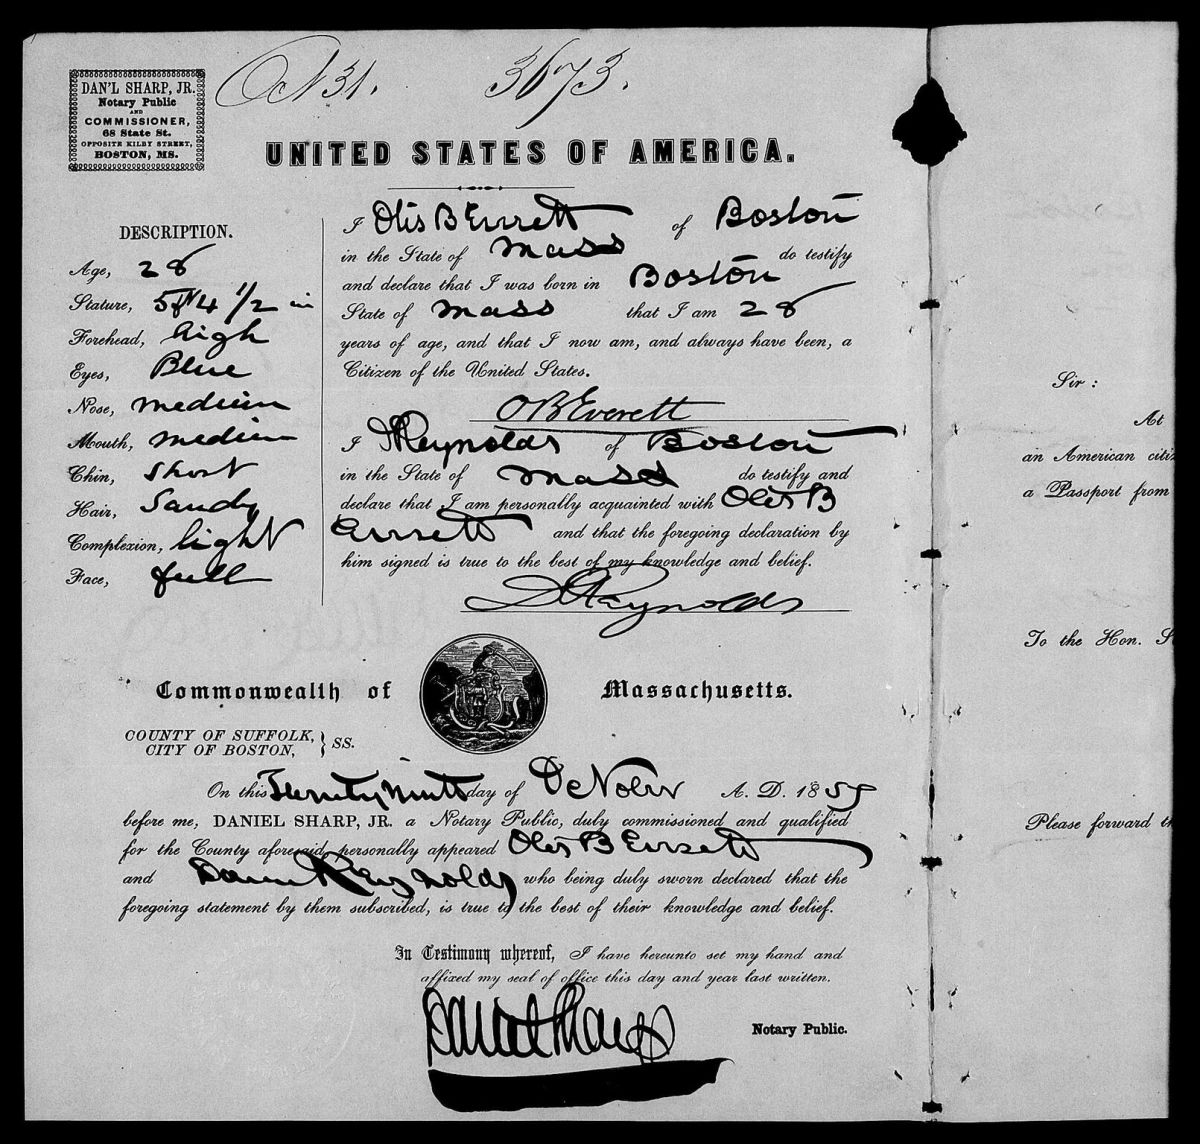 Oct 31. 3673.
DAN'L SHARP, JR.
Notary Public
AND
COMMISSIONER,
68 State St.
OPPOSITE KILBY STREET,
BOSTON, MS.
UNITED STATES OF AMERICA.
DESCRIPTION.
Age, 28
Stature, 5 ft 4 1/2 in
Forehead, high
Eyes, Blue
Nose, medium
Mouth, medium
Chin, Short
Hair, Sandy
Complexion, light
Face, full
I Otis B Everett of Boston
in the State of Mass do testify
and declare that I was born in Boston
State of Mass that I am 28
years of age, and that I now am, and always have been, a
Citizen of the United States.
O B Everett
I Reynolds of Boston
in the State of Mass do testify and
declare that I am personally acquainted with Otis B
Everett and that the foregoing declaration by
him signed is true to the best of my knowledge and belief.
Reynolds
Commonwealth of Massachusetts.
COUNTY OF SUFFOLK,
CITY OF BOSTON, } SS.
On this Twenty Ninth day of October A. D. 185
before me, DANIEL SHARP, JR. a Notary Public, duly commissioned and qualified
for the County aforesaid, personally appeared Otis B Everett
and Reynolds who being duly sworn declared that the
foregoing statement by them subscribed, is true to the best of their knowledge and belief.
In Testimony whereof, I have hereunto set my hand and
affixed my seal of office this day and year last written.
Daniel Sharp Jr
Notary Public.
Sir :
At
an American citiz
a Passport from
To the Hon. S
Please forward th